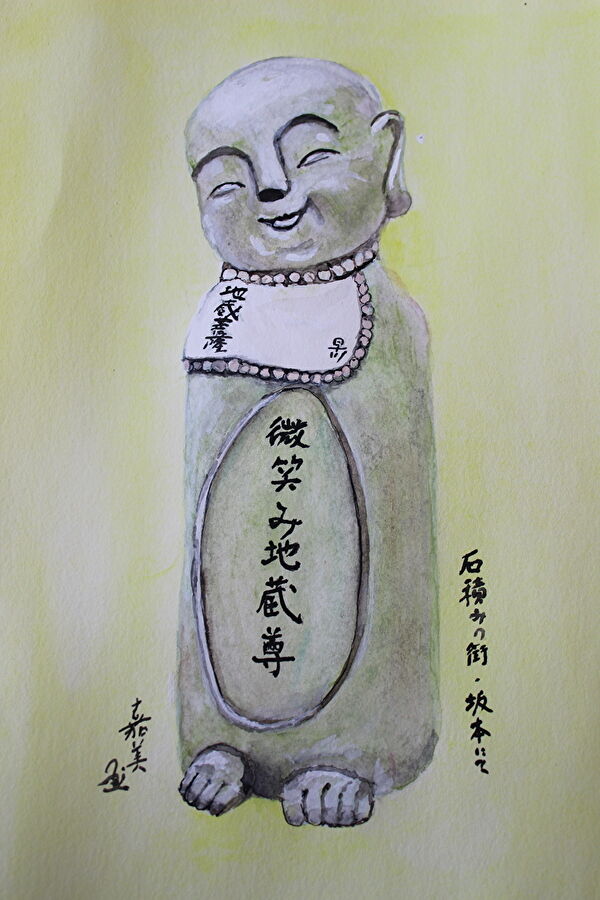 地蔵菩薩
微笑み地蔵尊
石積みの街・坂本にて
嘉美